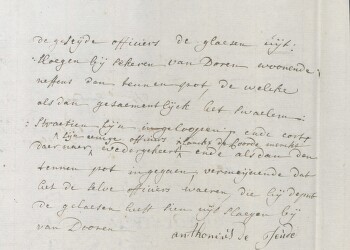 de geseijde officiers de glaesen uijt:
slaegen bij sekeren van Doren woonende
neffens den tennen pot de welke
als dan gesaementlijck het Swaelem
Straetien sijn geloopen, ende corts
sijn eenige officiers
daer naer, wedergekeert, ende als dan den
tennen pot in gegaen, vermeijnende dat
het de selve officiers waeren die hij deposant
de gelaesen heeft sien uijt slaegen bij
van Dooren
anthonius de